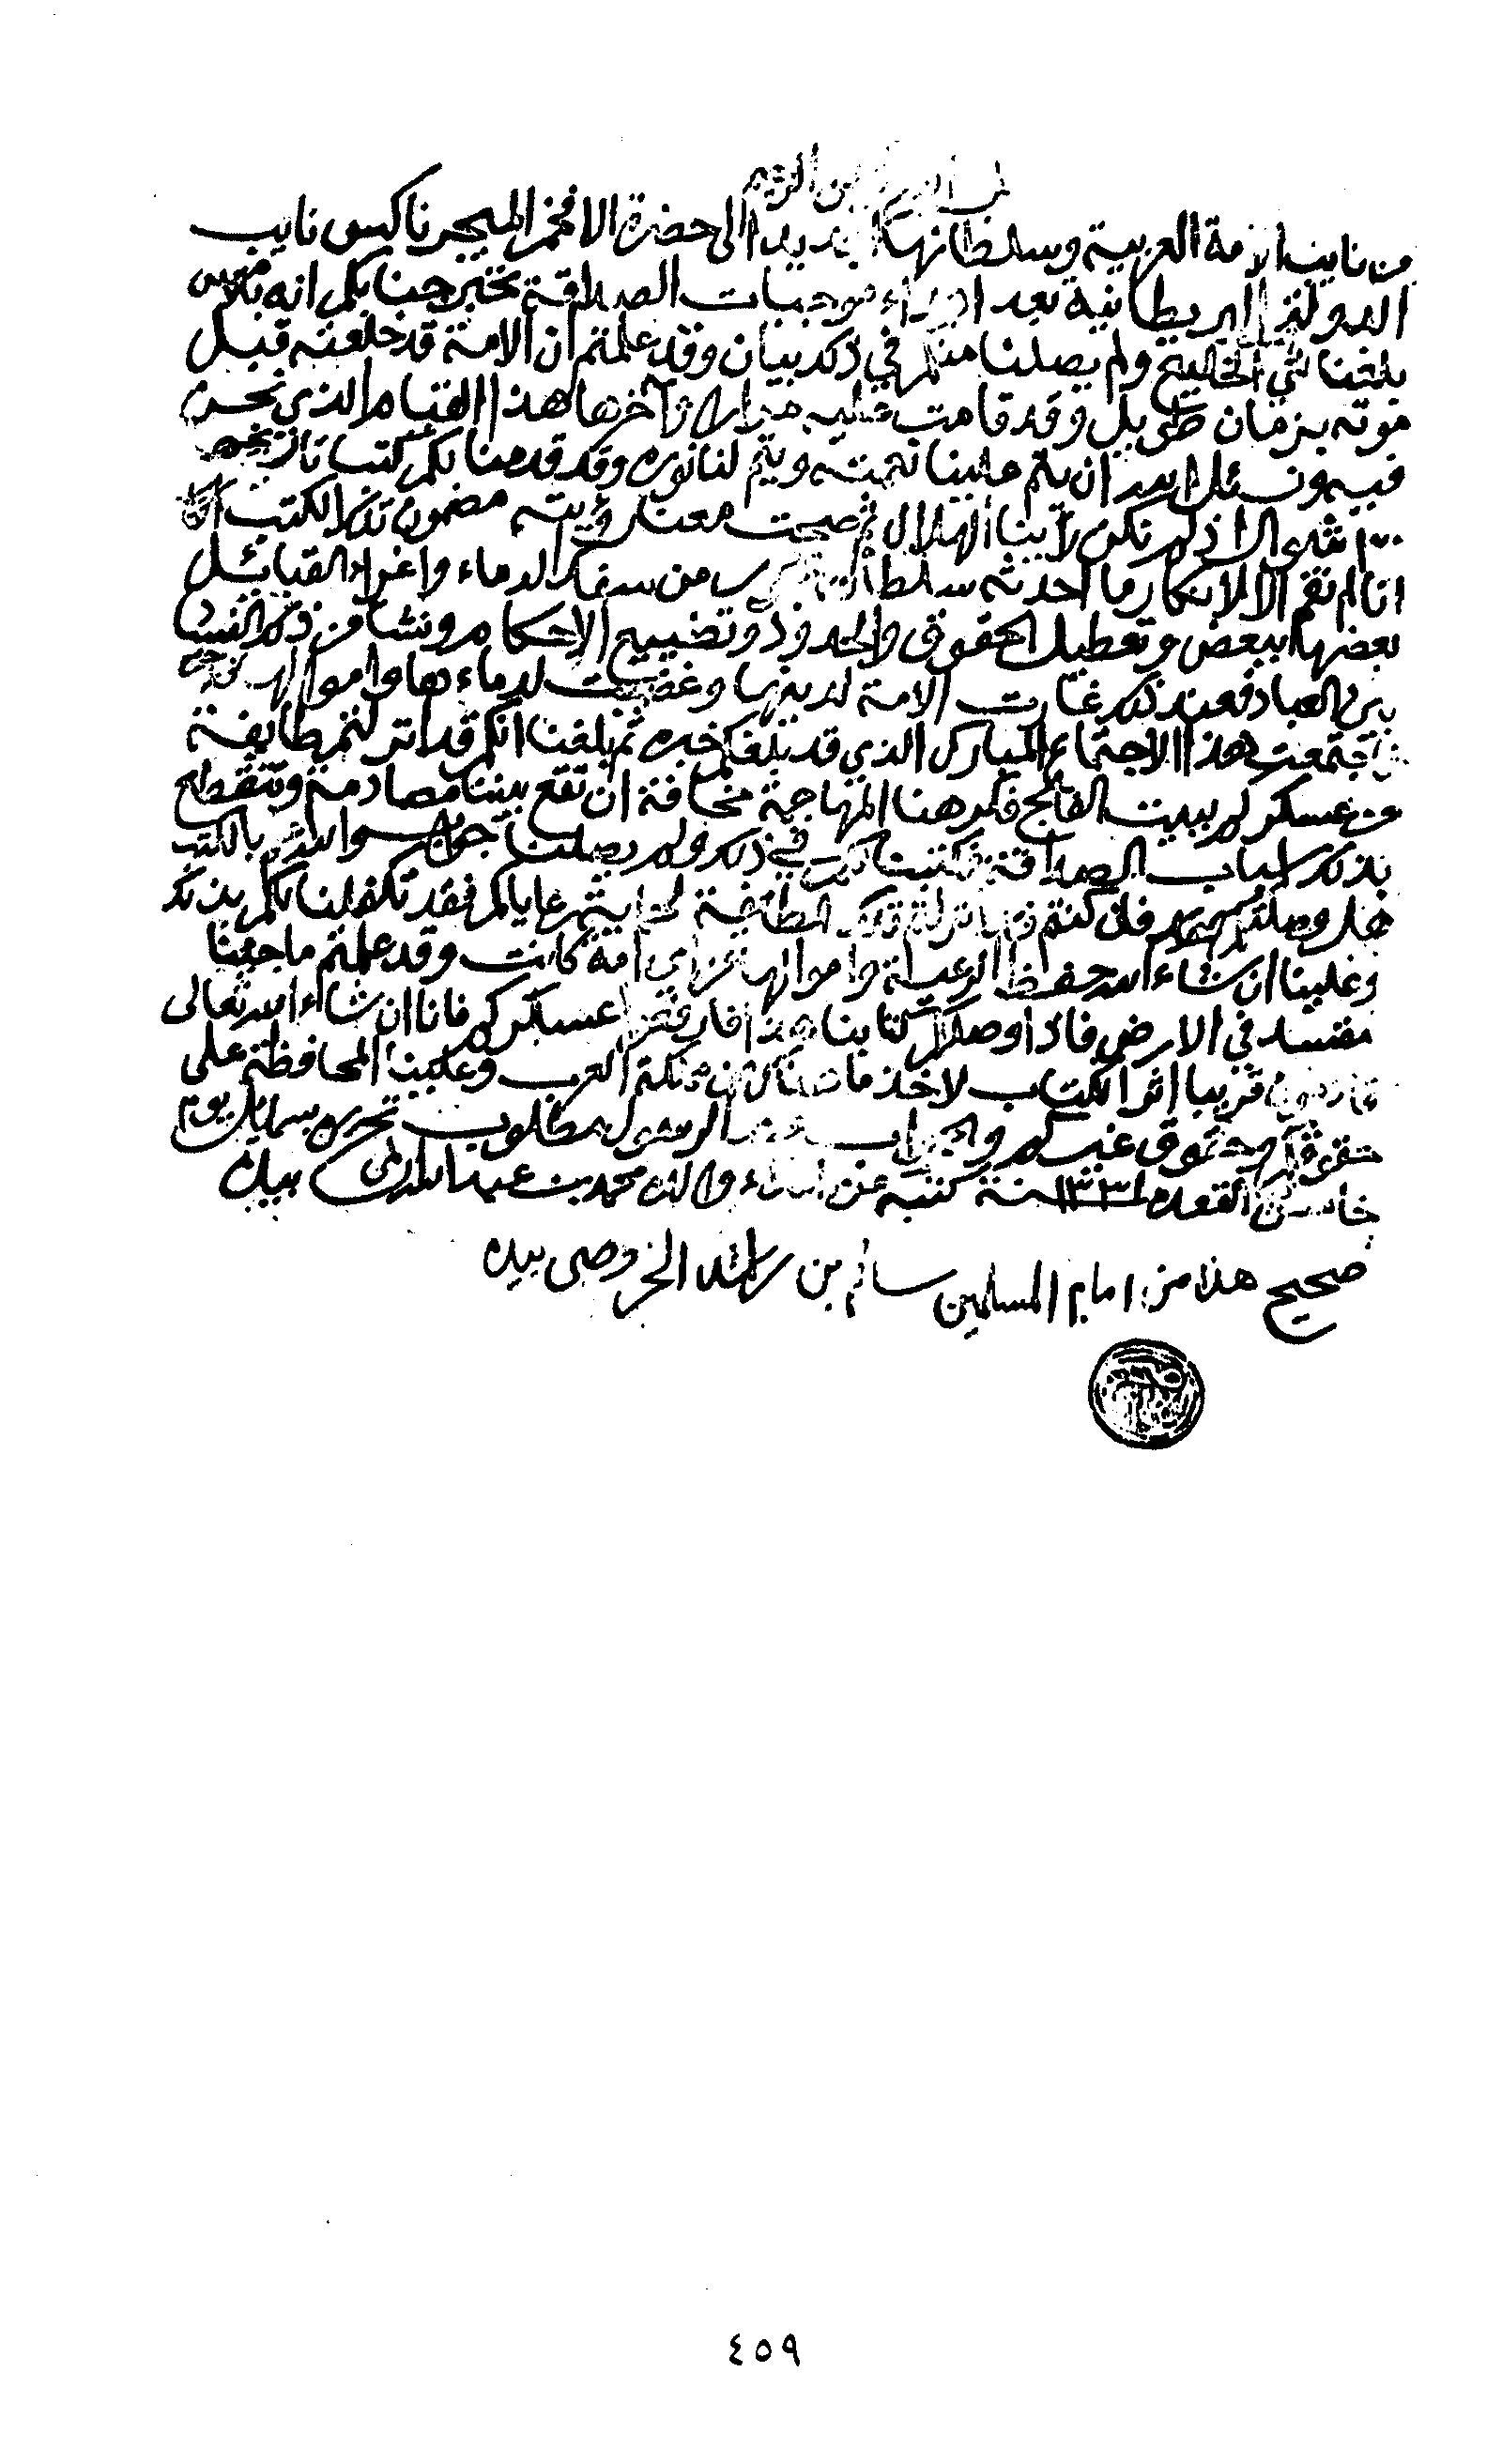 بسم الله الرحمن الرحيم
من نايب الامة العربية وسلطانها الجديد الى حضرة الافخم الميجر ناكس نايب
الدولة البريطانية بعد اداء موجبات الصداقة نخبر جنابكم انه بالامس
بلغنا شي الخليج ولم يصلنا منكم في ذلك بيان وقد علمتم ان الامة قد خلعته قبل
موته بزمان طويل وقد قامت عليه مرارا وآخرها هذا القيام الذي نحن
فيه ونسئل الله ان يتم علينا نعمته ويتم لنا نوره وقد قدمنا لكم كتبا تاريخهن
شوال اذ لم نكن رأينا الهلال ثم صحت معنا رؤيته مضمون تلك الكتب
انا لم نقم الا لانكار ما احدثه سلطان من سفك الدماء واغراء القبائل
بعضها ببعض وتعطيل الحقوق والحدود وتضييع الاحكام ونشا من ذلك الفساد
بين العباد فعند ذلك غارت الامة لدينها وغضبت لدماءها واموالها
فاجتمعت هذا الاجتماع المبارك الذي قد بلغكم خبره ثم بلغنا انكم قد انزلتم طايفة
من عسكركم ببيت الفالج فكرهنا المهاجمة مخافة ان تقع بيننا مصادمة وتنقطع
بذلك اسباب الصداقة فكتبنا لكم في ذلك ولم يصلنا جواب سوالكم بالكتب
هل وصلتكم ام لا فان كنتم انزلتم تلك الطائفة لحماية رعاياكم فقد تكفلنا لكم بذلك
وعلينا ان شاء الله حفظ الرعية واموالها من اي امة كانت وقد علمتم ما جئنا
مفسد في الارض فاذا وصلكم كتابنا هذا فارفعوا عسكركم فانا ان شاء الله تعالى
قادمون قريبا اثر الكتاب لاخذ ما هنالك من مملكة العرب وعلينا المحافظة على
حقوقكم وحقوق غيركم والجواب مع الرسول مطلوب تحريره بسمايل يوم
خامس من القعده ١٣٣١ سنة كتبه عن املاء والده محمد بن عبدالله بيده
صحيح هذا من امام المسلمين سالم بن راشد الخروصي بيده
٤٥٩